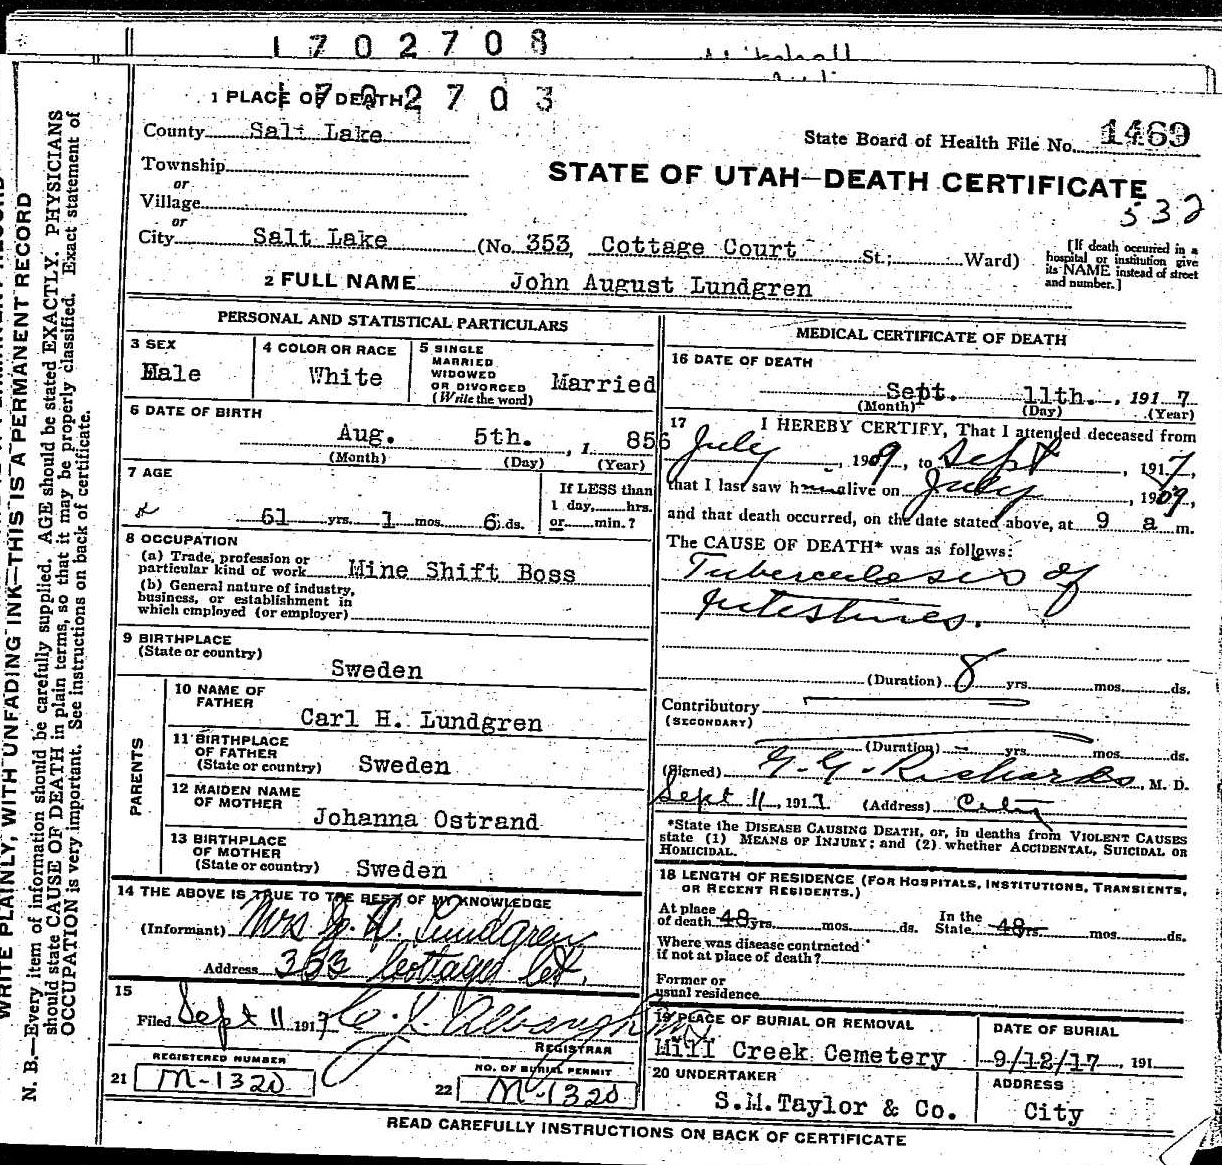 1 7 0 2 7 0 8
1 7 0 2 7 0 3
1 PLACE OF DEATH
County Salt Lake
State Board of Health File No. 1469
Township
or
STATE OF UTAH—DEATH CERTIFICATE
532
Village
or
City Salt Lake (No. 353, Cottage Court St.; Ward)
[If death occurred in a hospital or institution give its NAME instead of street and number.]
2 FULL NAME John August Lundgren
PERSONAL AND STATISTICAL PARTICULARS
3 SEX
Male
4 COLOR OR RACE
White
5 SINGLE
MARRIED
WIDOWED
OR DIVORCED
(Write the word)
Married
6 DATE OF BIRTH
Aug. 5th. , 1 856
(Month) (Day) (Year)
7 AGE
61 yrs. 1 mos. 6 ds.
If LESS than
1 day, hrs.
or min.?
8 OCCUPATION
(a) Trade, profession or
particular kind of work Mine Shift Boss
(b) General nature of industry,
business, or establishment in
which employed (or employer)
9 BIRTHPLACE
(State or country)
Sweden
PARENTS
10 NAME OF
FATHER
Carl H. Lundgren
11 BIRTHPLACE
OF FATHER
(State or country) Sweden
12 MAIDEN NAME
OF MOTHER
Johanna Ostrand
13 BIRTHPLACE
OF MOTHER
(State or country) Sweden
14 THE ABOVE IS TRUE TO THE BEST OF MY KNOWLEDGE
(Informant) Mrs J. A. Lundgren
Address 353 Cottage Ct.
15
Filed Sept 11 1917
REGISTRAR
REGISTERED NUMBER
21 M-1320
NO. OF BURIAL PERMIT
22 M-1320
MEDICAL CERTIFICATE OF DEATH
16 DATE OF DEATH
Sept. 11th. , 191 7
(Month) (Day) (Year)
17 I HEREBY CERTIFY, That I attended deceased from
July , 1909, to Sept , 1917,
that I last saw h alive on July , 1909,
and that death occurred, on the date stated above, at 9 a m.
The CAUSE OF DEATH* was as follows:
Tuberculosis of
intestines.
(Duration) 8 yrs. mos. ds.
Contributory
(SECONDARY)
(Duration) yrs. mos. ds.
(Signed) G. G. Richards, M. D.
Sept 11, 1917 (Address) City
*State the DISEASE CAUSING DEATH, or, in deaths from VIOLENT CAUSES
state (1) MEANS OF INJURY; and (2) whether ACCIDENTAL, SUICIDAL OR
HOMICIDAL.
18 LENGTH OF RESIDENCE (FOR HOSPITALS, INSTITUTIONS, TRANSIENTS,
OR RECENT RESIDENTS.)
At place
of death 48 yrs. mos. ds.
In the
State 48 yrs. mos. ds.
Where was disease contracted
if not at place of death?
Former or
usual residence
19 PLACE OF BURIAL OR REMOVAL
Mill Creek Cemetery
DATE OF BURIAL
9/12/17 , 191
20 UNDERTAKER
S.M.Taylor & Co.
ADDRESS
City
READ CAREFULLY INSTRUCTIONS ON BACK OF CERTIFICATE
WRITE PLAINLY, WITH UNFADING INK—THIS IS A PERMANENT RECORD
N. B.—Every item of information should be carefully supplied. AGE should be stated EXACTLY. PHYSICIANS
should state CAUSE OF DEATH in plain terms, so that it may be properly classified. Exact statement of
OCCUPATION is very important. See instructions on back of certificate.